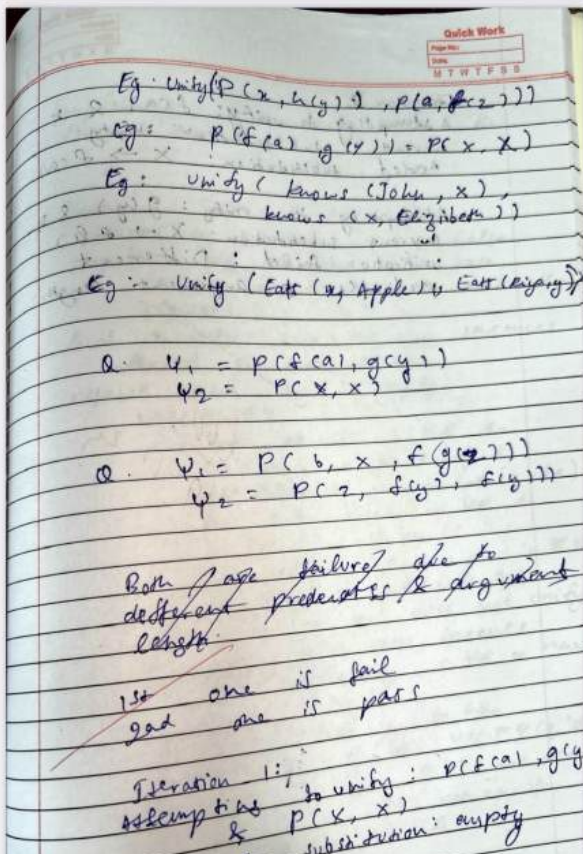 Quick Work
Page No.:
Date:
M T W T F S S
Eg. Unify(P(x, h(y)), P(a, f(z)))
Eg: P(f(a), g(y)) = P(x, X)
Eg: Unify (knows (John, x),
knows (x, Elizibeth))
Eg: Unify (Eats (x, Apple), Eats (Riya, y))
Q. Ψ1 = P(f(a), g(y))
Ψ2 = P(x, x)
Q. Ψ1 = P(b, x, f(g(z)))
Ψ2 = P(z, f(y), f(y)))
Both are failure due to
different & argument
length.
1st one is fail
2nd one is pass
Iteration 1:
Attempting to unify: P(f(a), g(y
& P(X, X)
substitution: empty